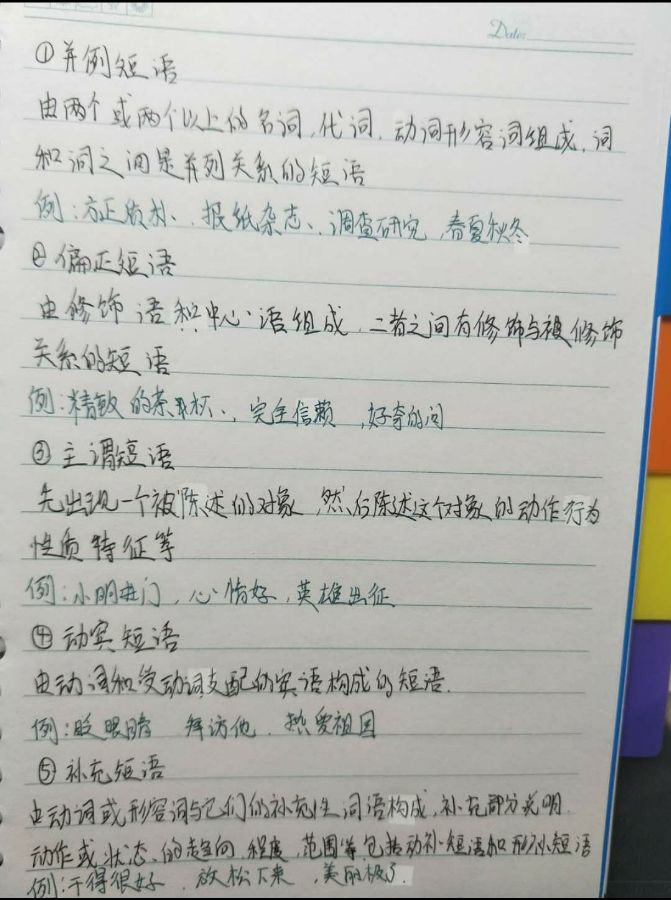 Date:
①并例短语
由两个或两个以上的名词,代词,动词形容词组成,词
和词之间是并列关系的短语
例:方正质朴、报纸杂志、调查研究,春夏秋冬
②偏正短语
由修饰语和中心语组成,二者之间有修饰与被修饰
关系的短语
例:精致的茶杯、完全信赖,好奇的问
③主谓短语
先出现一个被陈述的对象,然后陈述这个对象的动作行为
性质特征等
例:小明进门,心情好,英雄出征
④动宾短语
由动词和受动词支配的宾语构成的短语.
例:眨眼睛 拜访他.热爱祖国
⑤补充短语
由动词或形容词与它们的补充性词语构成,补充部分说明
动作或状态的趋向,程度,范围等包括动补短语和形补短语
例:干得很好.放松下来,美丽极了.